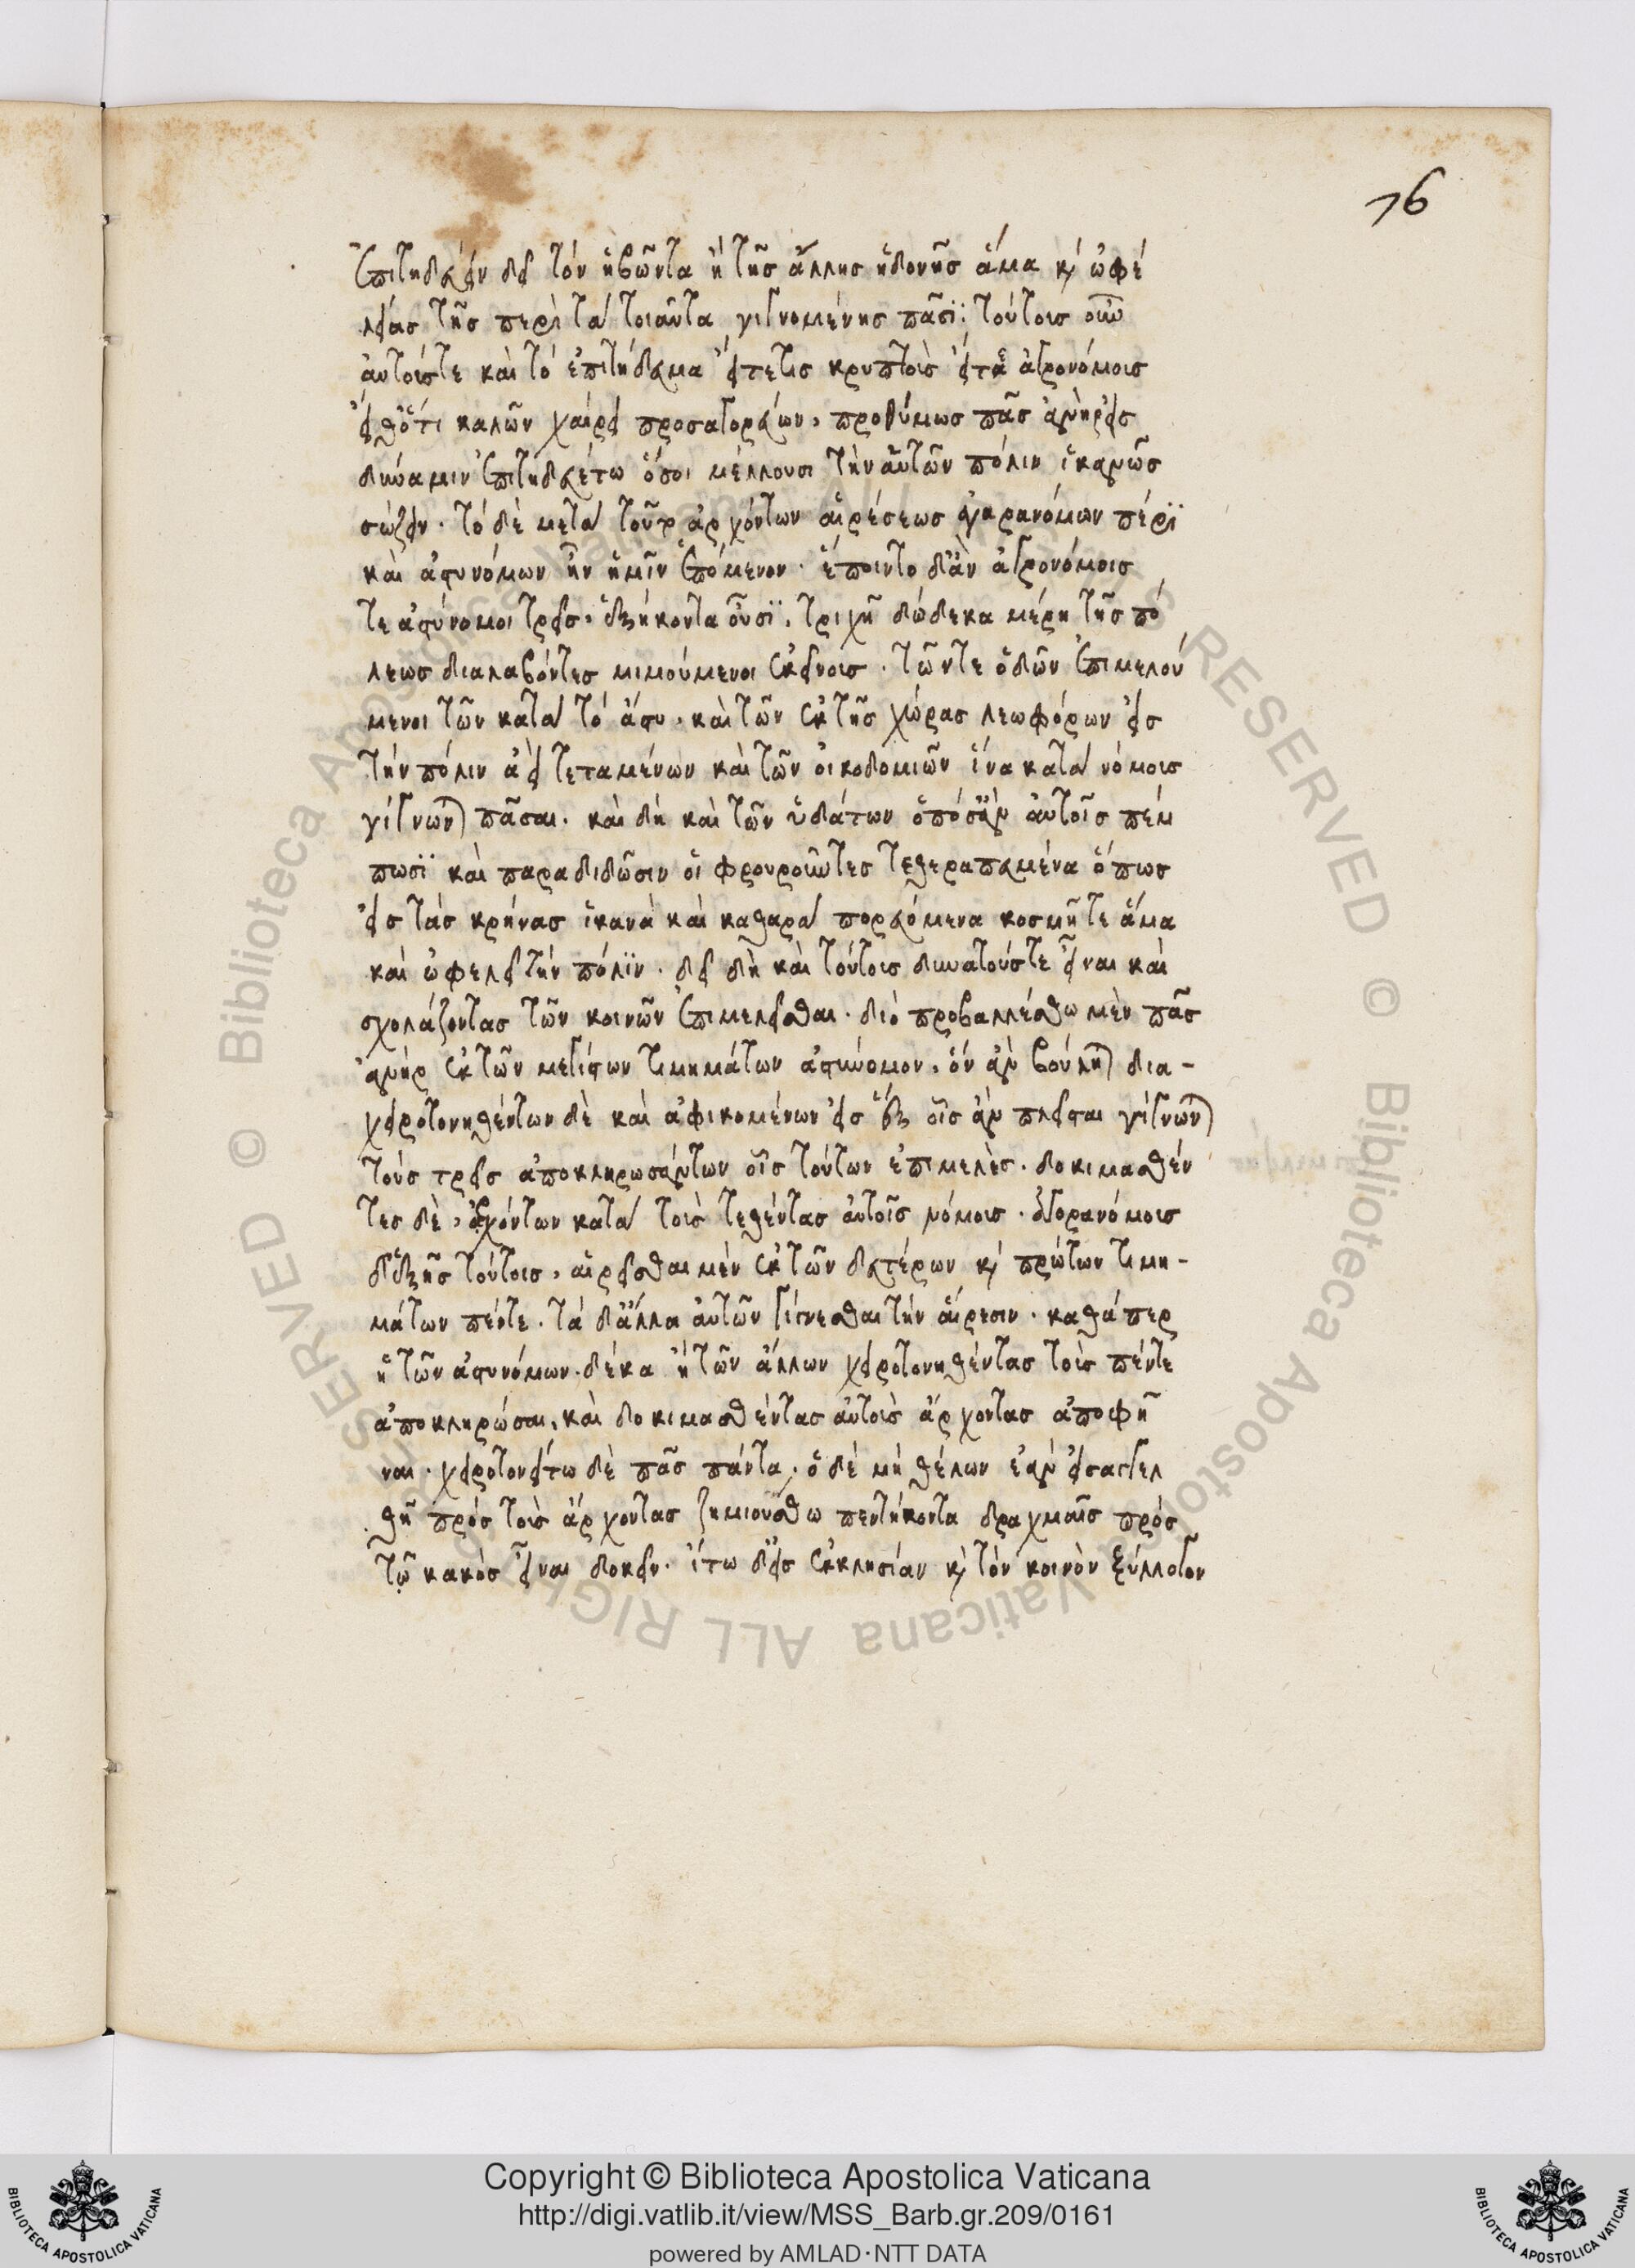 76
ἐπιτηδεύειν δεῖ τὸν ἡβῶντα ἢ τῆς ἄλλης ἡδονῆς ἅμα κ ὠφε
λείας τῆς περὶ τὰ τοιαῦτα γιγνομένης πᾶσϊ· τούτους οὖν
αὐτούς τε καὶ τὸ ἐπιτήδευμα εἴτε τις κρυπτοὺς εἴτε ἀγρονόμους
εἴθ' ὅτι καλῶν χαίρει προσαγορεύων, προθύμως πᾶς ἀνὴρ εἰς
δύναμιν ἐπιτηδευέτω ὅσοι μέλλουσι τὴν αὐτῶν πόλιν ἱκανῶς
σώζειν. τὸ δὲ μετὰ τοῦτ' ἀρχόντων αἱρέσεως ἀγορανόμων πέρϊ
καὶ ἀστυνόμων ἦν ἡμῖν ἑπόμενον. ἕποιντο δ' ἂν ἀγρονόμοις
τε ἀστύνομοι τρεῖς, ἑξήκοντα οὖσϊ. τριχῆ δώδεκα μέρη τῆς πό
λεως διαλαβόντες μιμούμενοι ἐκείνους. τῶν τε ὁδῶν ἐπιμελού
μενοι τῶν κατὰ τὸ ἄστυ, καὶ τῶν ἐκ τῆς χώρας λεωφόρων εἰς
τὴν πόλιν ἀεὶ τεταμένων καὶ τῶν οἰκοδομιῶν ἵνα κατὰ νόμους
γίγνωνται πᾶσαι. καὶ δὴ καὶ τῶν ὑδάτων ὁπόσ' ἂν αὐτοῖς πέμ
πωσϊ καὶ παραδιδῶσιν οἱ φρουροῦντες τεθεραπευμένα ὅπως
εἰς τὰς κρήνας ἱκανὰ καὶ καθαρὰ πορευόμενα κοσμῆ τε ἅμα
καὶ ὠφελεῖ τὴν πόλϊν. δεῖ δὴ καὶ τούτους δυνατούς τε εἶναι καὶ
σχολάζοντας τῶν κοινῶν ἐπιμελεῖσθαι. διὸ προβαλλέσθω μὲν πᾶς
ἀνὴρ ἐκ τῶν μεγίστων τιμημάτων ἀστύνομον, ὃν ἂν βούληται δια-
χειροτονηθέντων δὲ καὶ ἀφικομένων εἰς ἓξ οἷς ἂν πλεῖσται γίγνωνται
τοὺς τρεῖς ἀποκληρωσάντων οἷς τούτων ἐπιμελὲς. δοκιμασθέν
τες δὲ, ἀρχόντων κατὰ τοὺς τεθέντας αὐτοῖς νόμους. ἀγορανόμους
δ' ἑξῆς τούτοις, αἱρεῖσθαι μὲν ἐκ τῶν δευτέρων κ πρώτων τιμη-
μάτων πέντε. τὰ δ' ἄλλα αὐτῶν γίγνεσθαι τὴν αἵρεσιν. καθάπερ
ἡ τῶν ἀστυνόμων. δέκα ἢ τῶν ἄλλων χειροτονηθέντας τοὺς πέντε
ἀποκληρῶσαι, καὶ δοκιμασθέντας αὐτοὺς ἄρχοντας ἀποφῆ
ναι. χειροτονείτω δὲ πᾶς πάντα. ὁ δὲ μὴ θέλων ἐὰν εἰσαγγελ
θῆ πρὸς τοὺς ἄρχοντας ζημιούσθω πεντήκοντα δραχμαῖς πρὸς
τῷ κακὸς εἶναι δοκεῖν. ἴτω δ' εἰς ἐκκλησίαν κ τὸν κοινὸν ξύλλογον
Copyright © Biblioteca Apostolica Vaticana
http://digi.vatlib.it/view/MSS_Barb.gr.209/0161
powered by AMLAD·NTT DATA